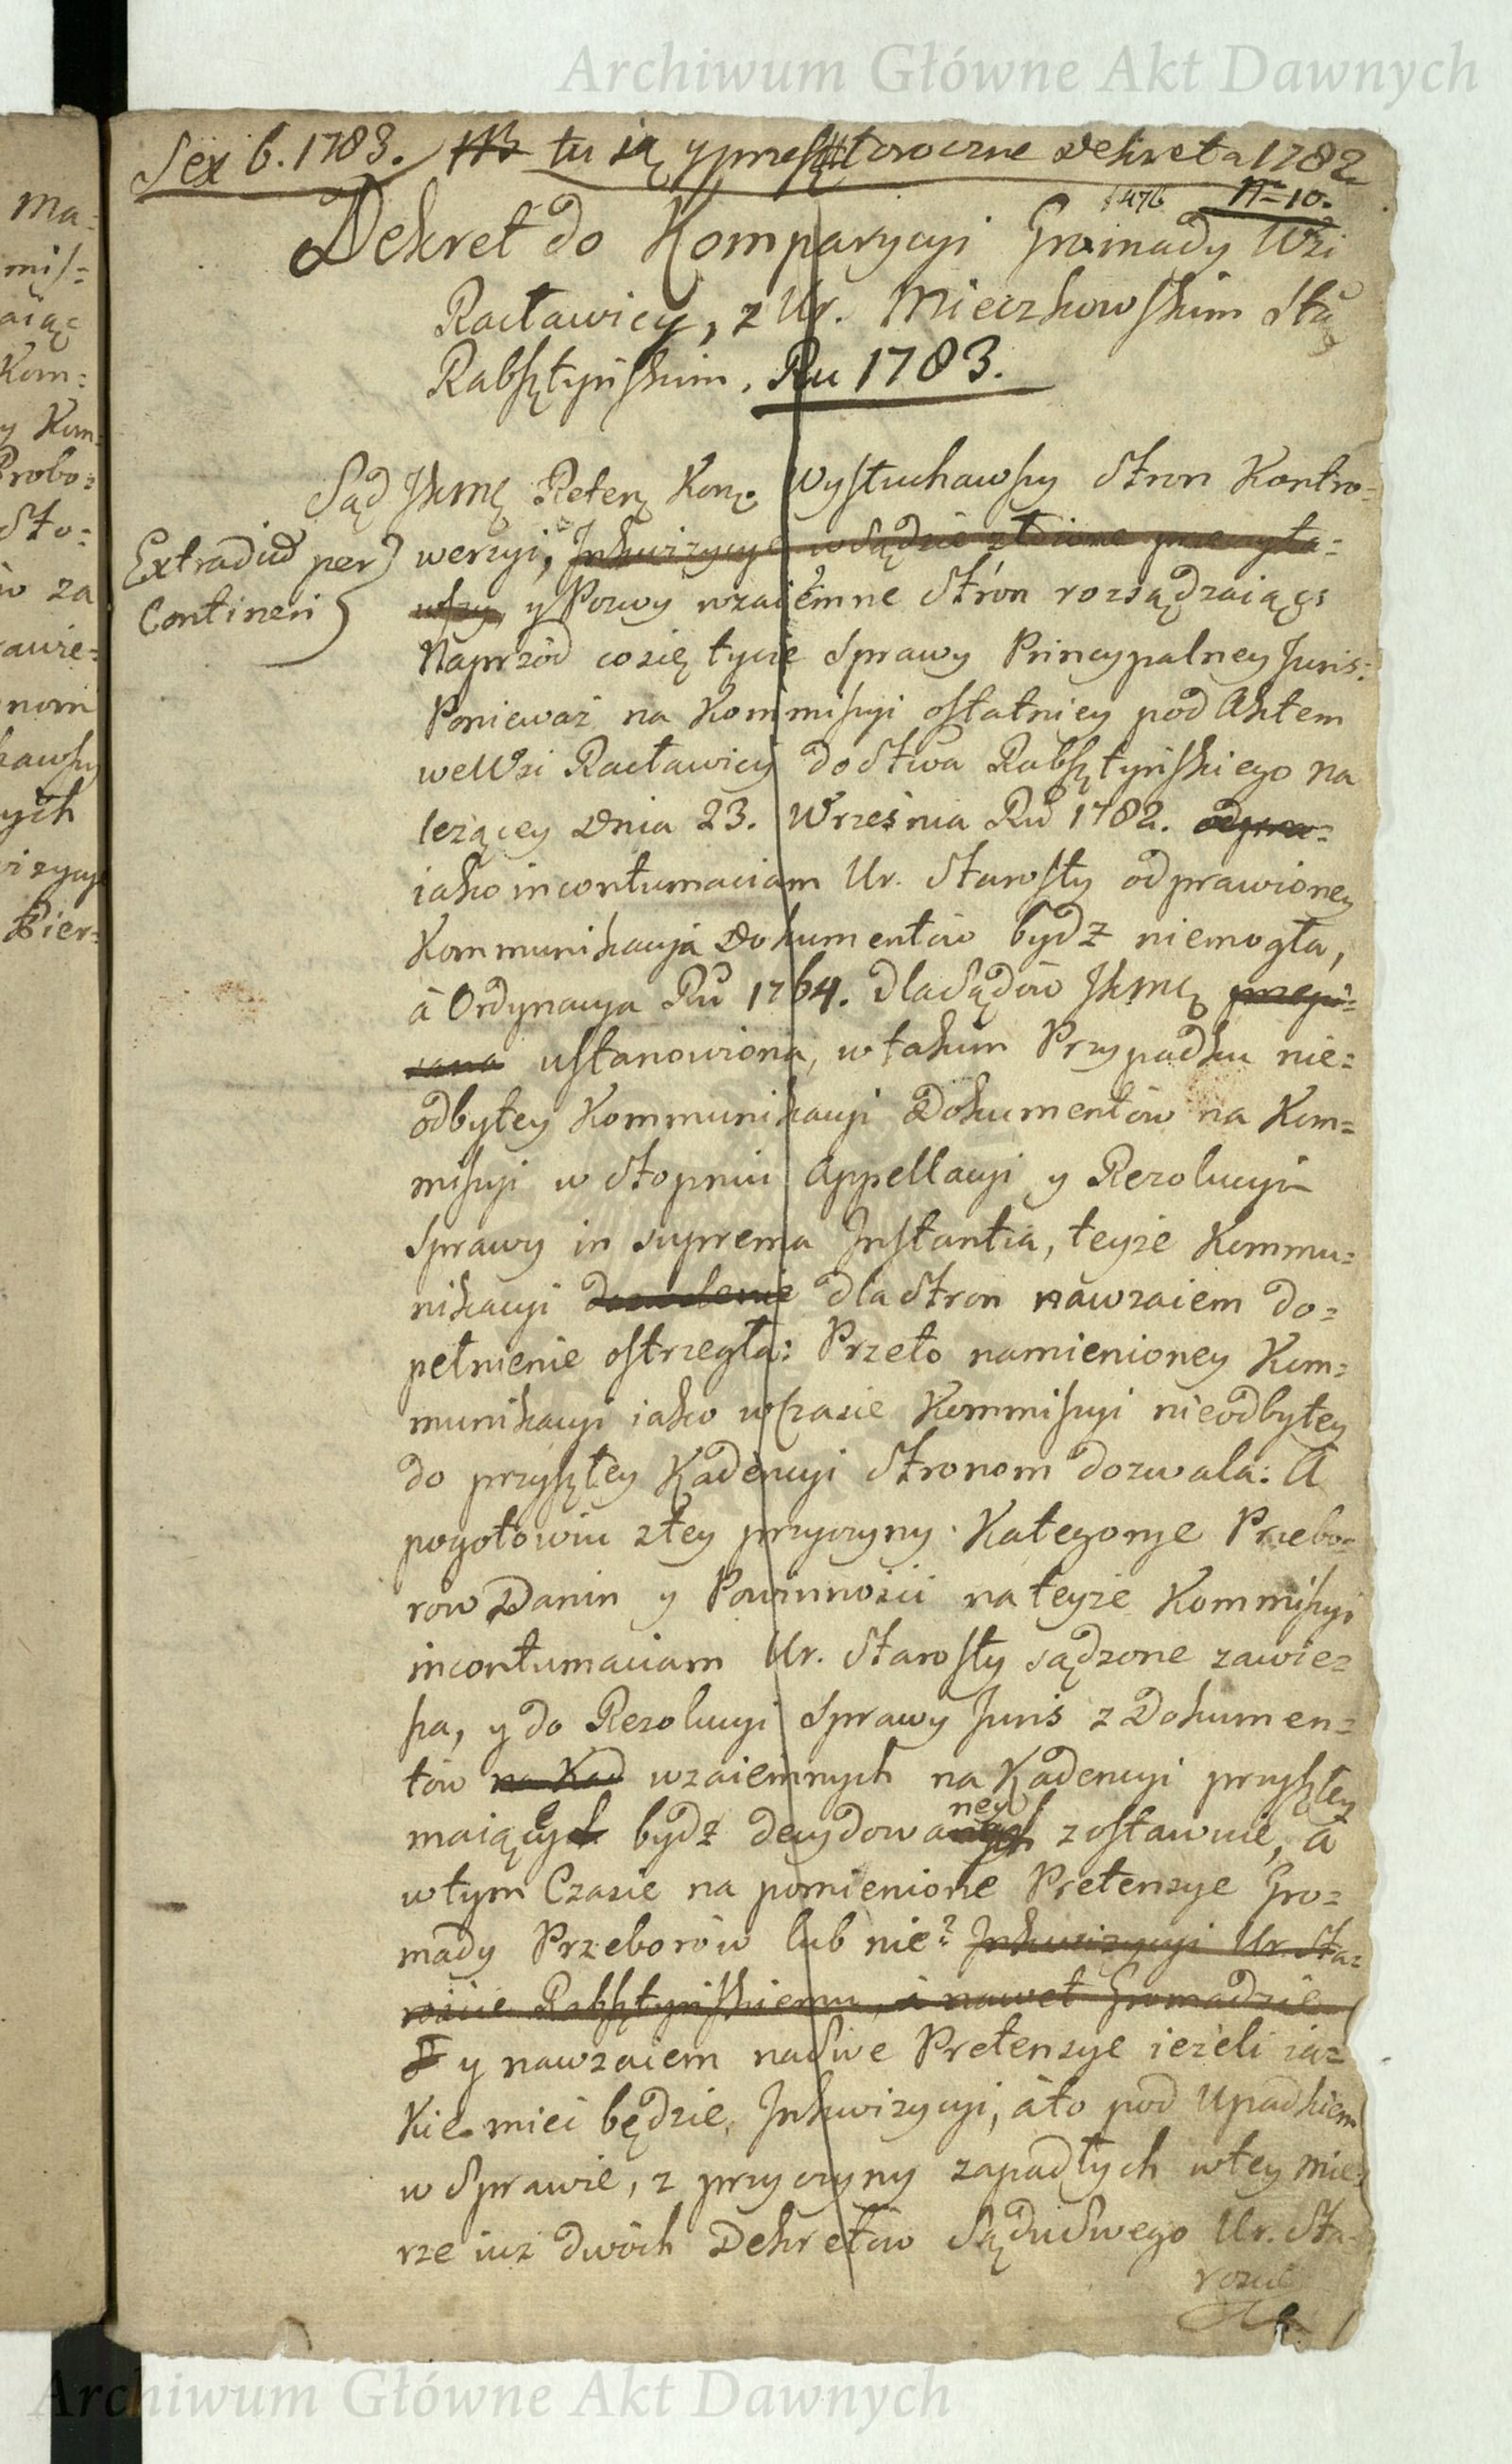 Archiwum Główne Akt Dawnych
Sex 6. 1783. NB tu są y przeszłoroczne dekreta 1782
1476 N=10.
Dekret do Komparycyi Gromady Wsi
Racławicy, z Ur. Mieczkowskim Stą
Rabsztyńskim, Ru 1783.
Sąd JKMci Refer: Kor: Wysłuchawszy Stron Kontro=
Extradid per
Contineri
werzyi, Inkwizycye w Sądzie złożone przeczyta=
wszy, y Pozwy wzaiemne Strón rozsądzaiąc
Naprzód co się tycze Sprawy Pryncypalney Juris:
Ponieważ na Kommissyi ostatniey pod Aktem
we Wsi Racławicy do Stwa Rabsztyńskiego na
leżącey Dnia 23. Września Ru 1782. odpra=
iako in contumaciam Ur. Starosty odprawioney
Kommunikacya Dokumentów bydź niemogła,
á Ordynacya Ru 1764. dla Sądów JKMci przepi=
sana ustanowiona, w takim Przypadku nie=
odbytey Kommunikacyi Dokumentów na Kom=
missyi w Stopniu Appellacyi y Rezolucyi
Sprawy in suprema Instantia, teyże Kommu=
nikacyi dozwolenie dla Stron nawzaiem do=
pełnienie ostrzegła: Przeto namienioney Kom=
munikacyi iako w Czasie Kommissyi nieodbytey
do przyszłey Kadencyi Stronom dozwala: A
pogotowiu z tey przyczyny Kategorye Przebo=
row Danin y Powinności na teyże Kommissyi
in contumaciam Ur. Starosty sądzone zawie=
sza, y do Rezolucyi Sprawy Juris z Dokumen=
tów na Kad wzaiemnych na Kadencyi przyszłey
maiącey bydź decydowaney zostawuie, á
w tym Czasie na pomienione Pretensye Gro=
mady Przeborów lub nie? Inkwizycyi Ur. Sta=
roście Rabsztyńskiemu, á nawet Gromadzie
y nawzaiem na Swe Pretensye ieżeli ia=
Kie mieć będzie, Inkwizycyi, á to pod Upadkiem
w Sprawie, z przyczyny zapadłych w tey mie=
rze iuż dwóch Dekretów Sądu Swego Ur. Sta=
roście
Ma=
mis=
aiąc
Kom=
y Kom=
Probo=
Sto=
w za
awie=
nom
hawszy
ych
wizycye
Bier=
Archiwum Główne Akt Dawnych